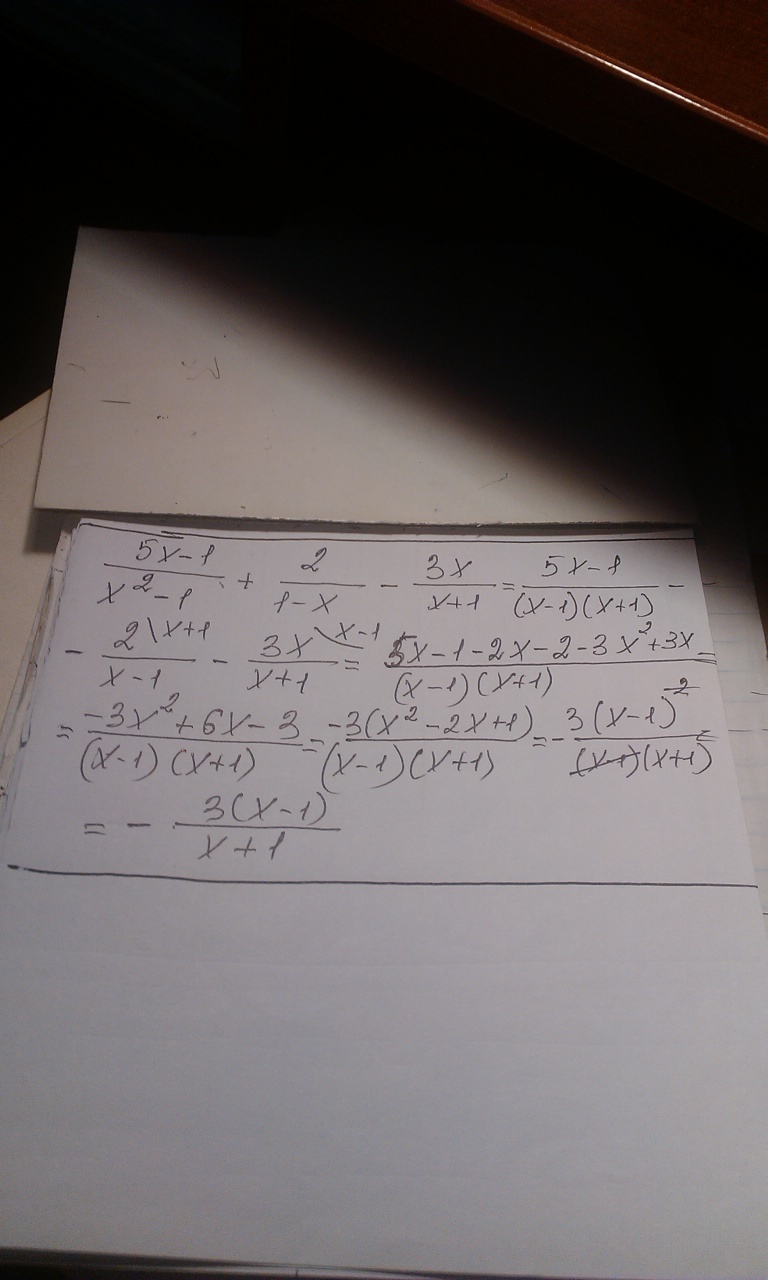 (5x-1)/(x²-1) + 2/(1-x) - 3x/(x+1) = (5x-1)/((x-1)(x+1)) -
- 2\x+1/(x-1) - 3x\x-1/(x+1) = (5x-1-2x-2-3x²+3x)/((x-1)(x+1)) =
= (-3x²+6x-3)/((x-1)(x+1)) = -3(x²-2x+1)/((x-1)(x+1)) = - 3(x-1)²/((x-1)(x+1)) =
= - 3(x-1)/(x+1)